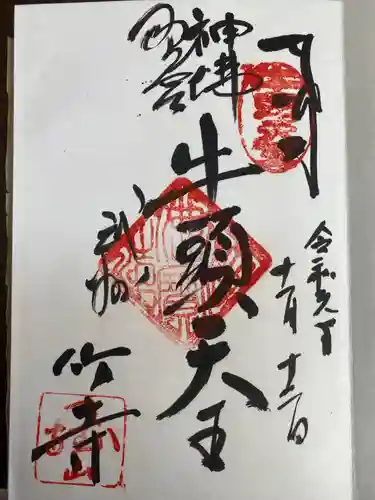 奉拝
令和元年
十一月十二日
神仏
習合
牛頭天王
武州
竹寺